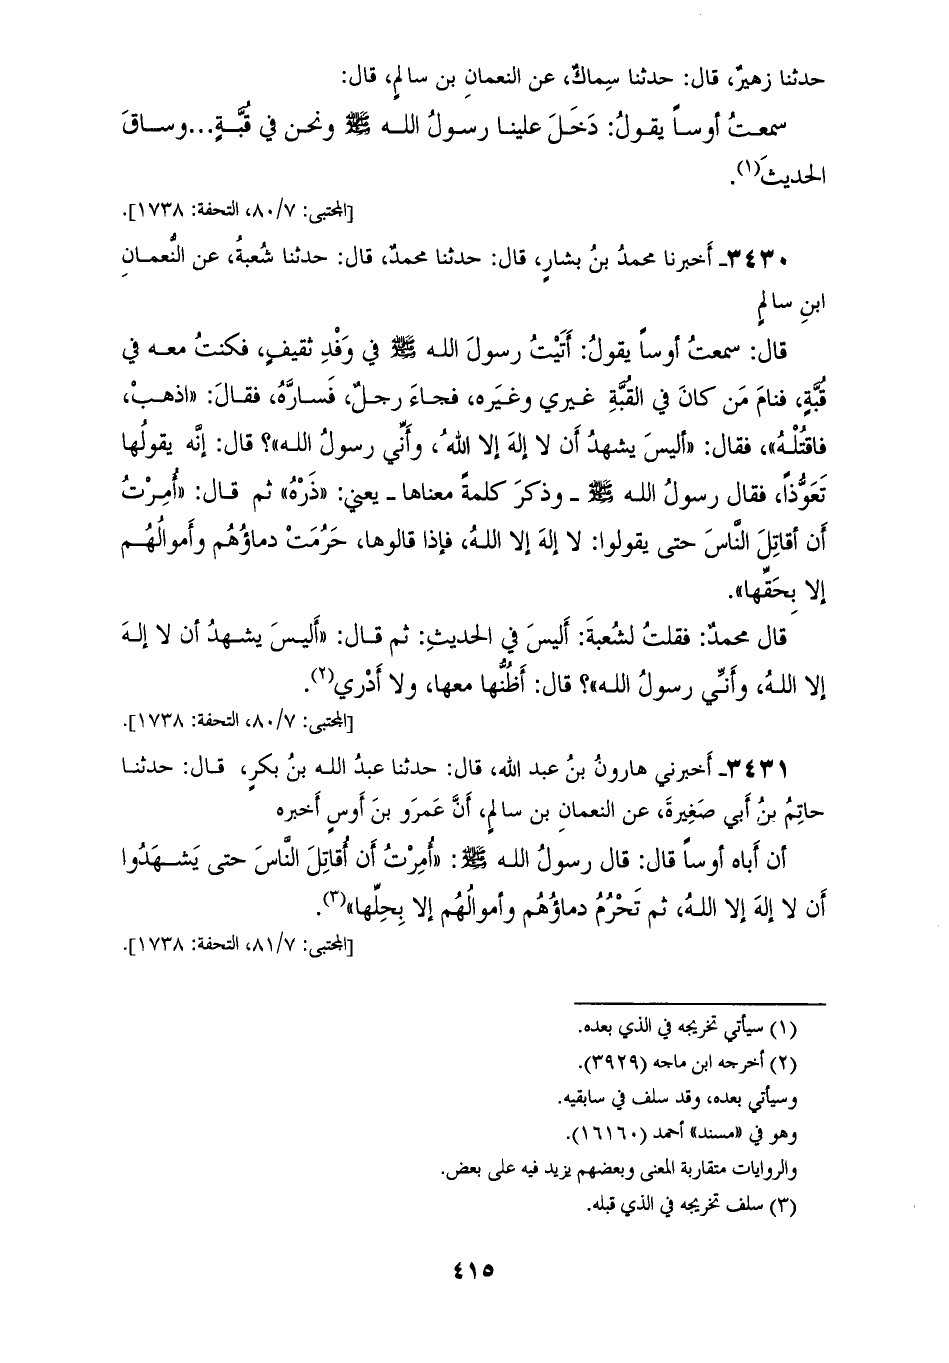 حدثنا زهيرٌ، قال: حدثنا سِماكٌ، عن النعمانِ بن سالمٍ، قال:
سمعتُ أوساً يقولُ: دَخَلَ علينا رسولُ الله ﷺ ونحن في قُبَّةٍ...وساقَ
الحديثَ(١).
[المجتبى: ٨٠/٧، التحفة: ١٧٣٨].
٣٤٣٠ـ أَخبرنا محمدُ بنُ بشارٍ، قال: حدثنا محمدٌ، قال: حدثنا شُعبةُ، عن النُّعمانِ
ابنِ سالمٍ
قال: سمعتُ أوساً يقولُ: أَتَيْتُ رسولَ الله ﷺ في وَفْدِ ثقيفٍ، فكنتُ معه في
قُبَّةٍ، فنامَ مَن كانَ في القُبَّةِ غيري وغيَره، فجاءَ رجلٌ، فَسارَّهُ، فقالَ: «اذهبْ،
فاقتُلْهُ»، فقال: «أليسَ يشهدُ أن لا إلهَ إلا اللهُ، وأَنِّي رسولُ الله»؟ قال: إنَّه يقولُها
تَعَوُّذاً، فقال رسولُ الله ﷺ ـ وذكرَ كلمةً معناها ـ يعني: «ذَرْهُ» ثم قال: «أُمِرْتُ
أن أقاتِلَ النَّاسَ حتى يقولوا: لا إلهَ إلا اللهُ، فإذا قالوها، حَرُمَتْ دماؤُهُم وأَموالُهُم
إلا بِحَقِّها».
قال محمدٌ: فقلتُ لشُعبةَ: أَليسَ في الحديثِ: ثم قال: «أَليسَ يشهدُ أن لا إلهَ
إلا اللهُ، وأَنِّي رسولُ الله»؟ قال: أَظُنُّها معها، ولا أَدْري(٢).
[المجتبى: ٨٠/٧، التحفة: ١٧٣٨].
٣٤٣١ـ أَخبرني هارونُ بنُ عبد الله، قال: حدثنا عبدُ الله بنُ بكرٍ، قال: حدثنا
حاتِمُ بنُ أبي صَغِيرةَ، عن النعمانِ بن سالمٍ، أَنَّ عَمرَو بنَ أَوسٍ أَخبره
أن أَباه أوساً قال: قال رسولُ الله ﷺ: «أُمِرْتُ أن أُقاتِلَ النَّاسَ حتى يَشهَدُوا
أَن لا إلهَ إلا اللهُ، ثم تَحْرُمُ دماؤُهُم وأموالُهُم إلا بِحِلِّها»(٣).
[المجتبى: ٨١/٧، التحفة: ١٧٣٨].
(١) سيأتي تخريجه في الذي بعده.
(٢) أخرجه ابن ماجه (٣٩٢٩).
وسيأتي بعده، وقد سلف في سابقيه.
وهو في «مسند» أحمد (١٦١٦٠).
والروايات متقاربة المعنى وبعضهم يزيد فيه على بعض.
(٣) سلف تخريجه في الذي قبله.
٤١٥